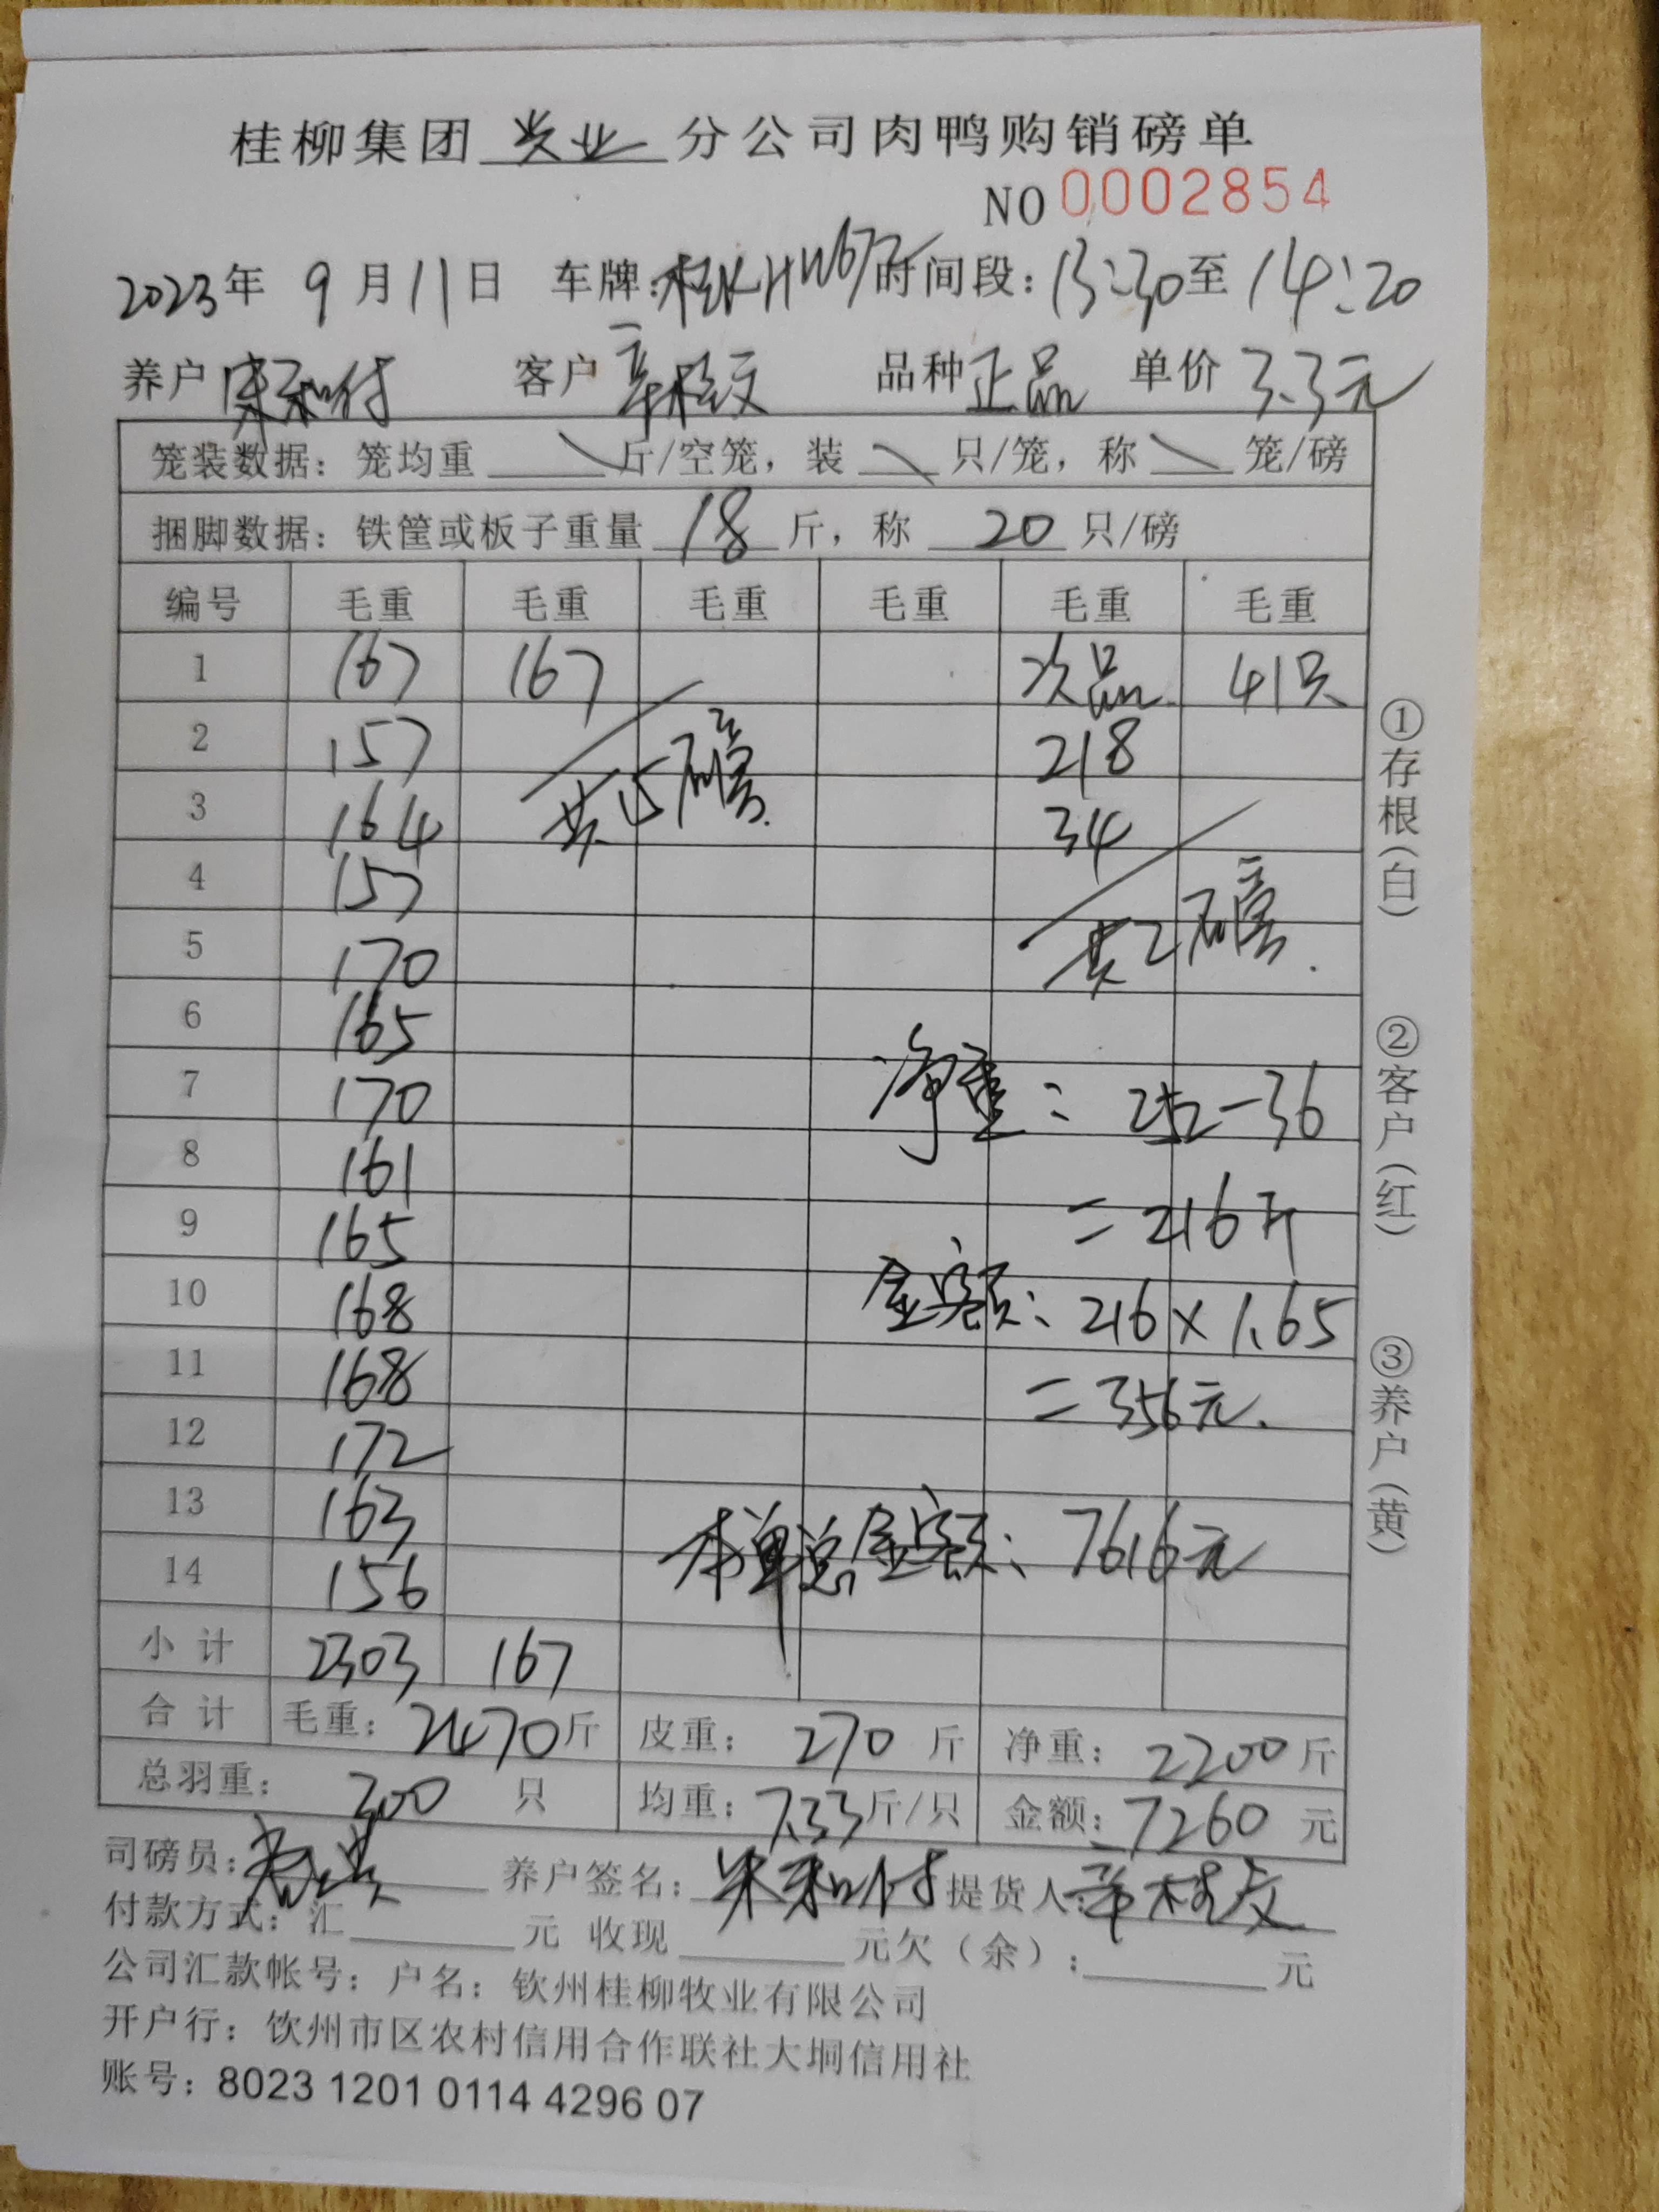 桂柳集团 兴业 分公司肉鸭购销磅单
NO 0002854
2023年 9月11日 车牌:桂KHW672 时间段:13:30至14:20
养户 朱和付 客户 辛桂文 品种 正品 单价 3.3元
笼装数据: 笼均重 \ 斤/空笼, 装 \ 只/笼, 称 \ 笼/磅
捆脚数据: 铁筐或板子重量 18 斤, 称 20 只/磅
编号 毛重 毛重 毛重 毛重 毛重 毛重
1 167 167 次品 41只
2 157 218
3 164 共15磅. 34
4 157
5 170 共2磅.
6 165
7 170 净重: 252-36
8 161
9 165 =216斤
10 168 金额: 216×1.65
11 168 =356元.
12 172
13 163 本单总金额: 7616元
14 156
小计 2303 167
合计 毛重: 2470斤 皮重: 270 斤 净重: 2200斤
总羽重: 300 只 均重: 7.33斤/只 金额: 7260 元
司磅员: 养户签名: 朱和付 提货人: 辛桂文
付款方式: 汇 元 收现 元欠(余): 元
公司汇款帐号: 户名: 钦州桂柳牧业有限公司
开户行: 饮州市区农村信用合作联社大垌信用社
账号: 8023 1201 0114 4296 07
①存根(白)
②客户(红)
③养户(黄)